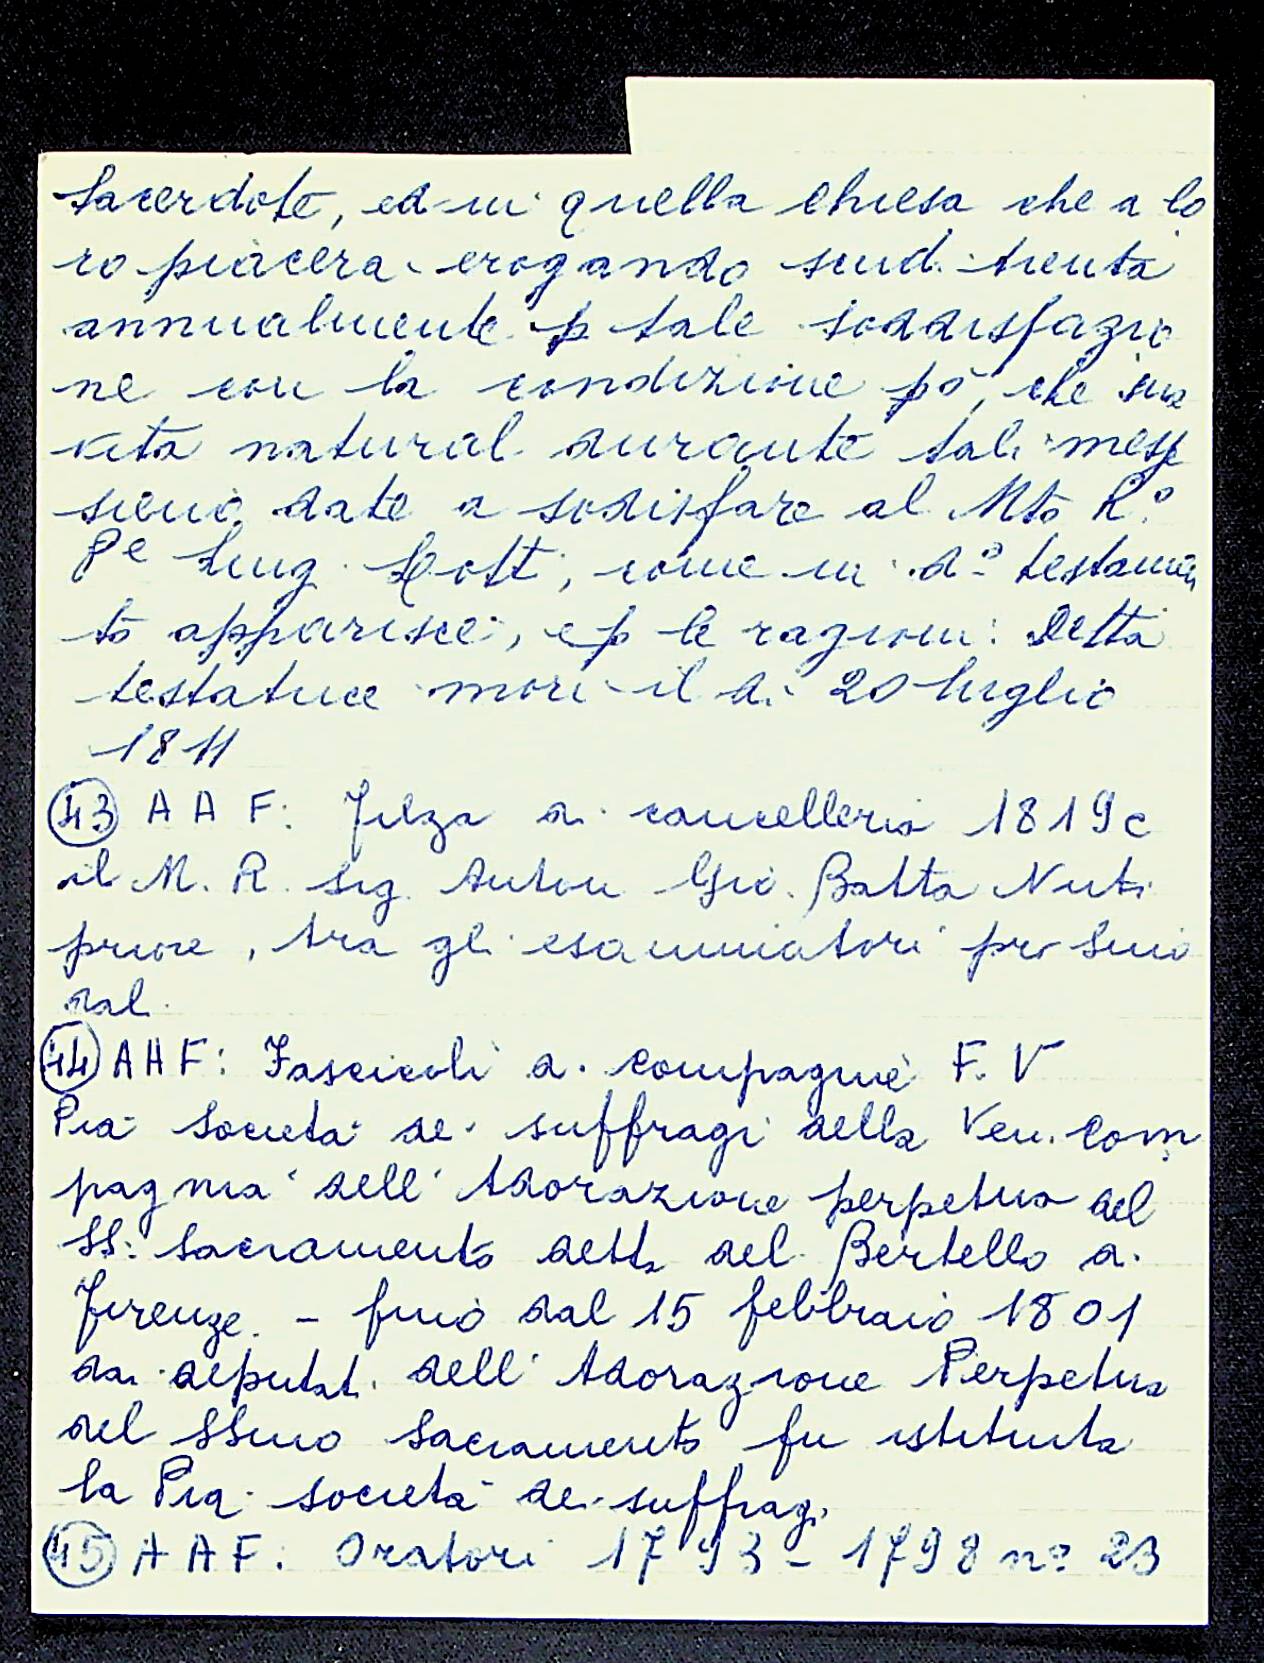 Sacerdote, ed in quella chiesa che a lo
ro piacerà erogando scud. trenta
annualmente p tale soddisfazio
ne con la condizione pò, che sua
vita natural durante tali messe
sieno date a sodisfare al Mto R.º
Pe Luig. Dott, come in d.º testamen
to apparisce, e p le ragioni: Detta
testatrice morì il di 20 luglio
1811
43 A A F: Filza di cancelleria 1819 c
il M. R. Sig. Anton Gio. Batta Nuti
priore, tra gli esaminatori pro Sino
dal.
44 A A F: Fascicoli di compagnie F. V
Pia Società dei suffragi della Ven. Com
pagnia dell' Adorazione perpetua del
SS. Sacramento detta del Bertello di
Firenze. - fino dal 15 febbraio 1801
dai deputati dell' Adorazione Perpetua
del SSmo Sacramento fu istituita
la Pia società dei suffragi
45 A A F: Oratori 1793 - 1798 nº 23